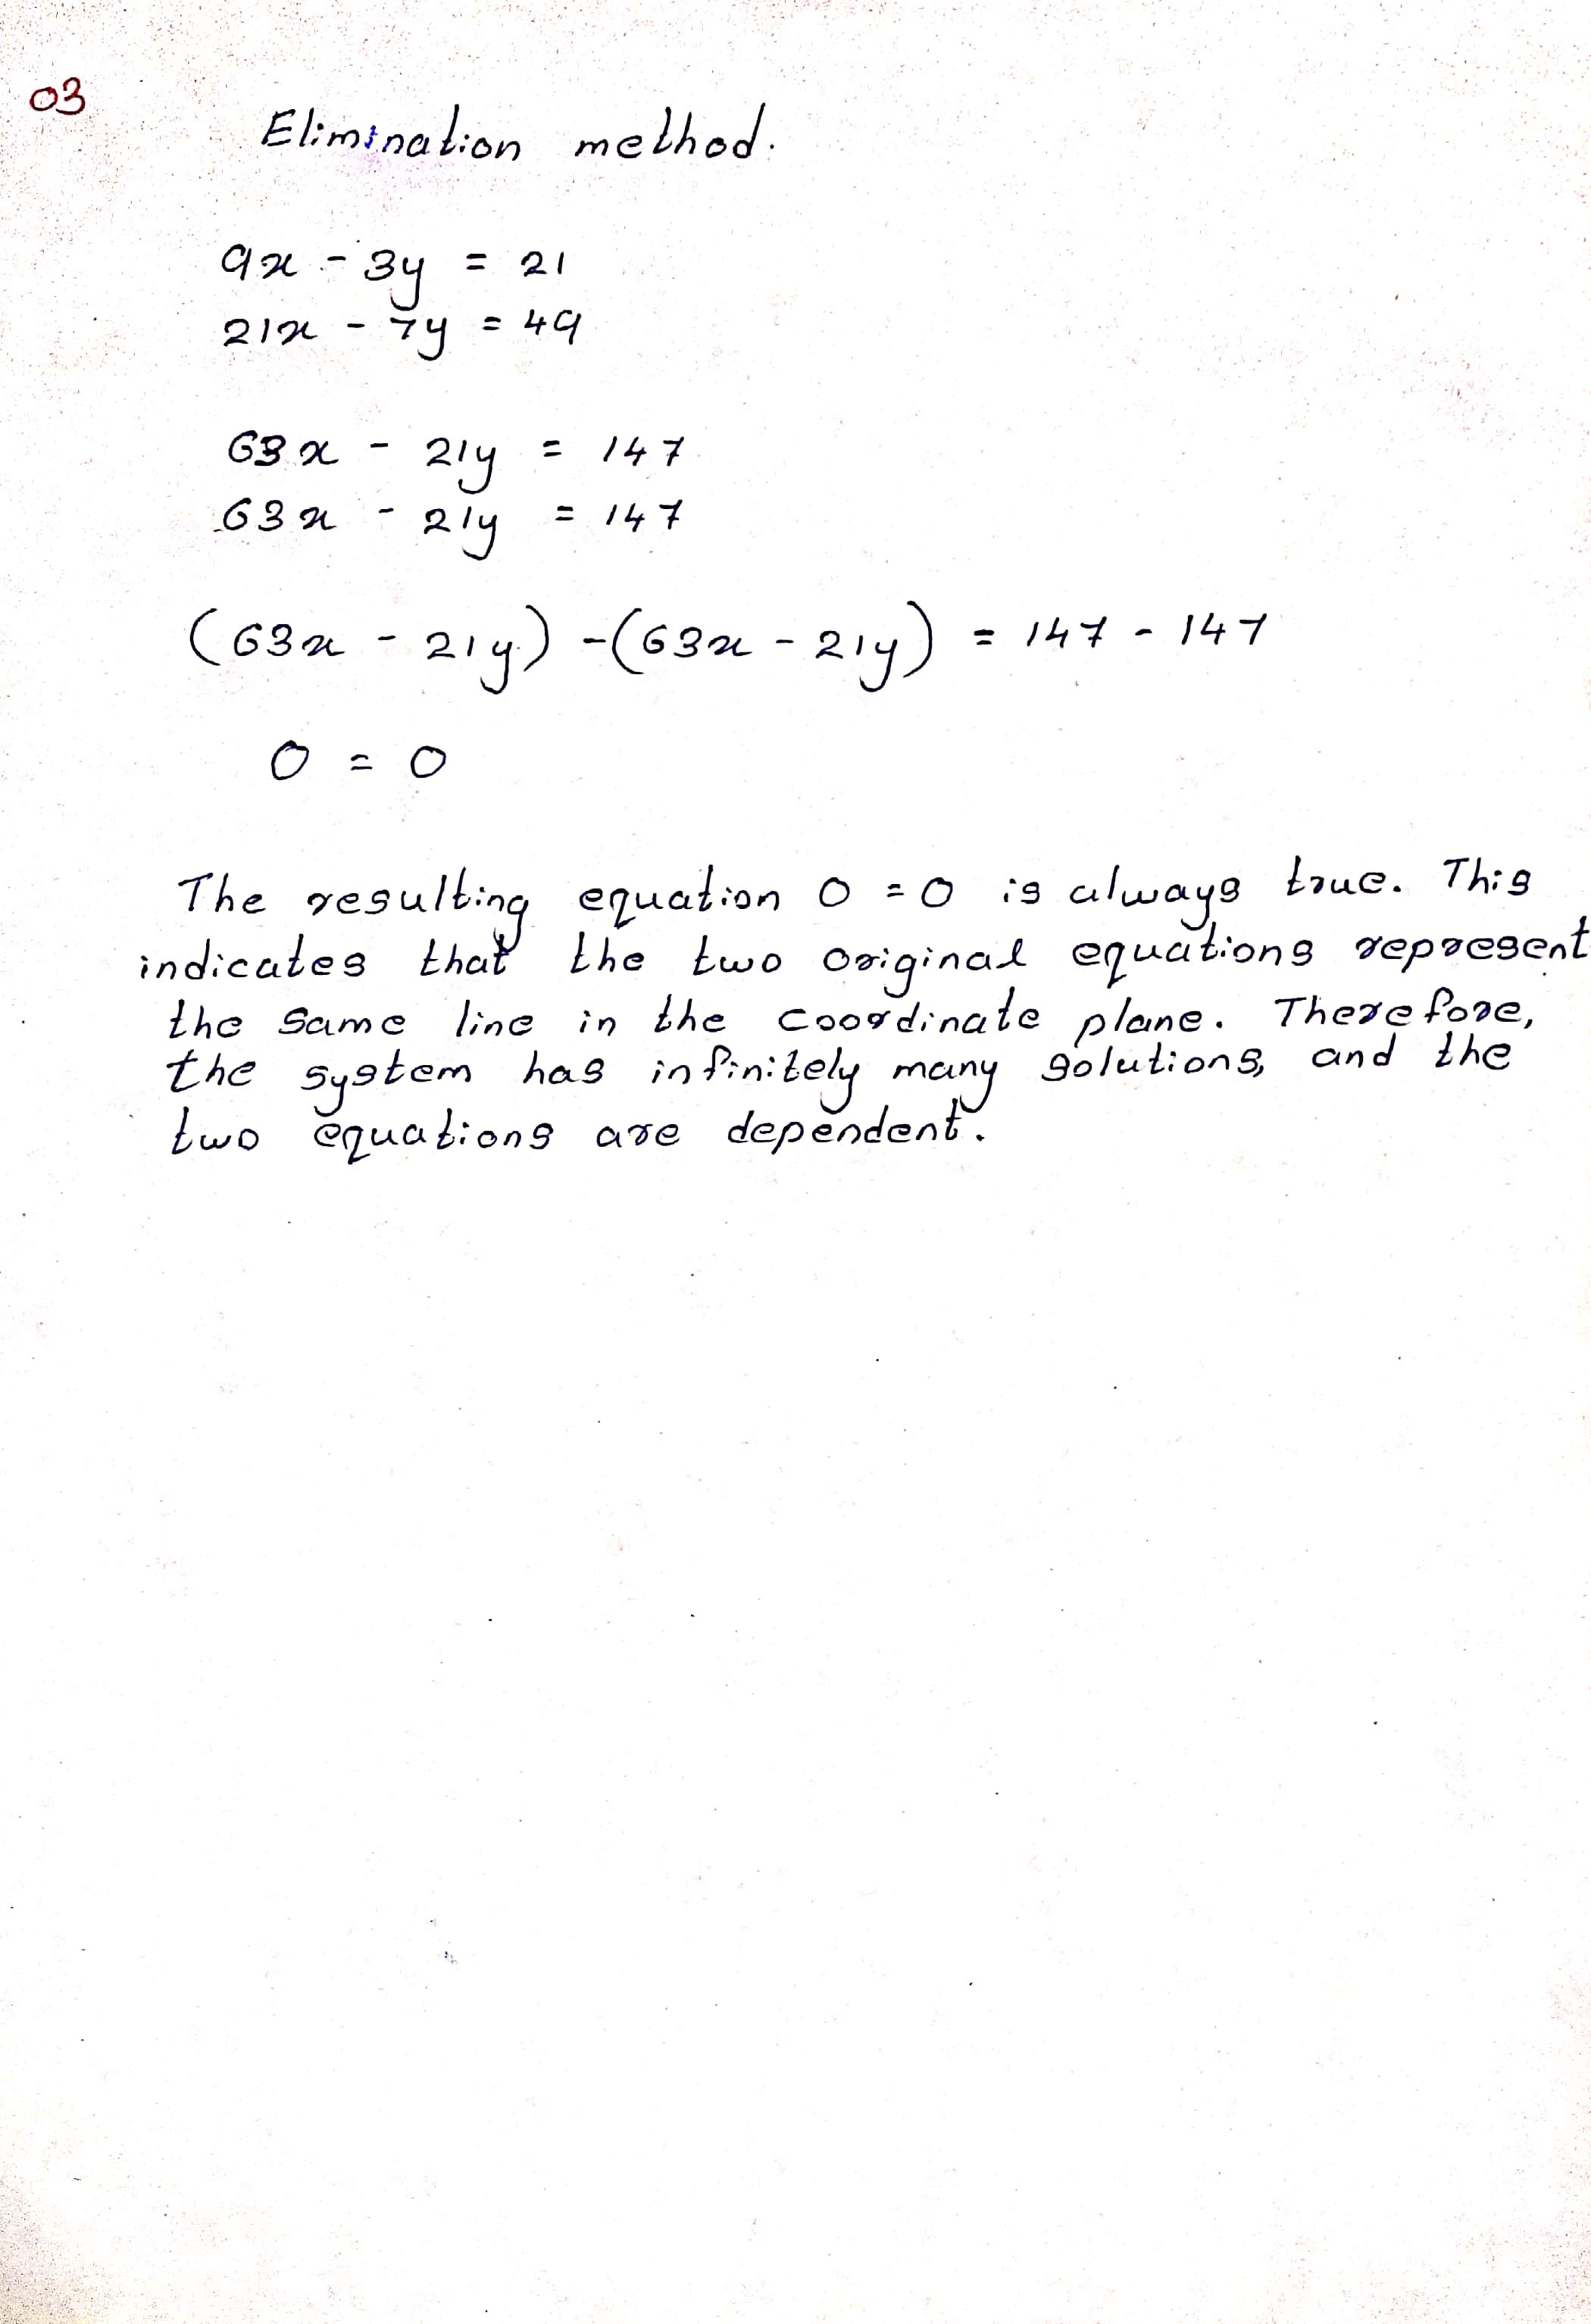 03
Elimination method.
9x - 3y = 21
21x - 7y = 49
63x - 21y = 147
63x - 21y = 147
(63x - 21y) - (63x - 21y) = 147 - 147
0 = 0
The resulting equation 0 = 0 is always true. This
indicates that the two original equations represent
the same line in the coordinate plane. Therefore,
the system has infinitely many solutions, and the
two equations are dependent.